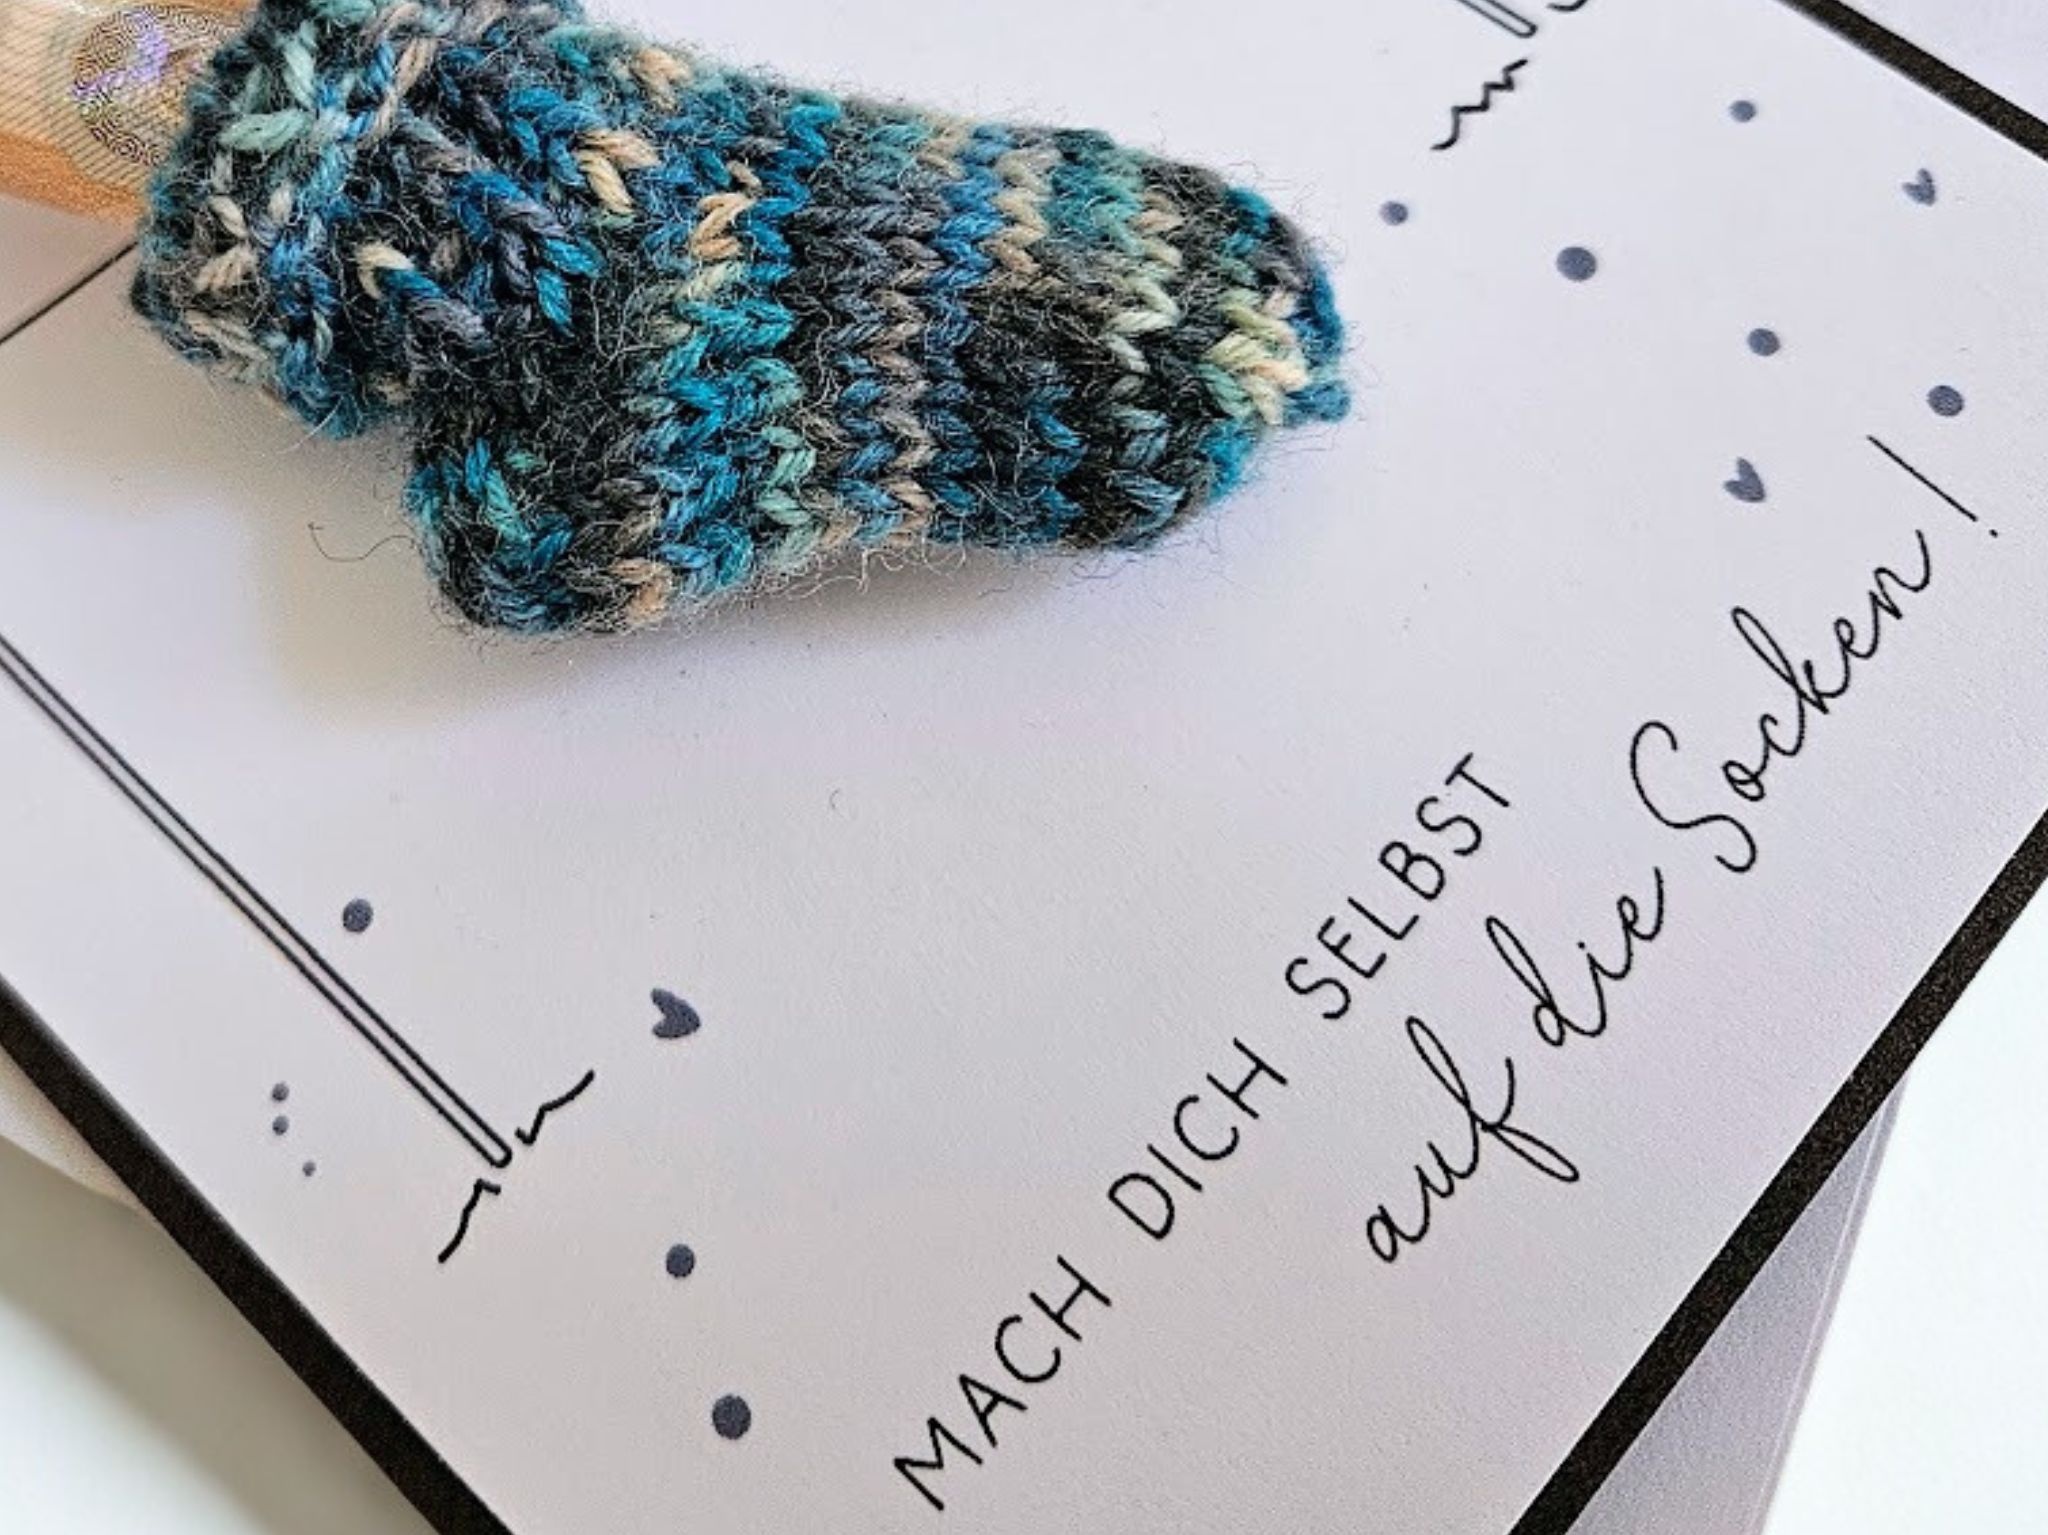 MACH DICH SELBST
auf die Socken!